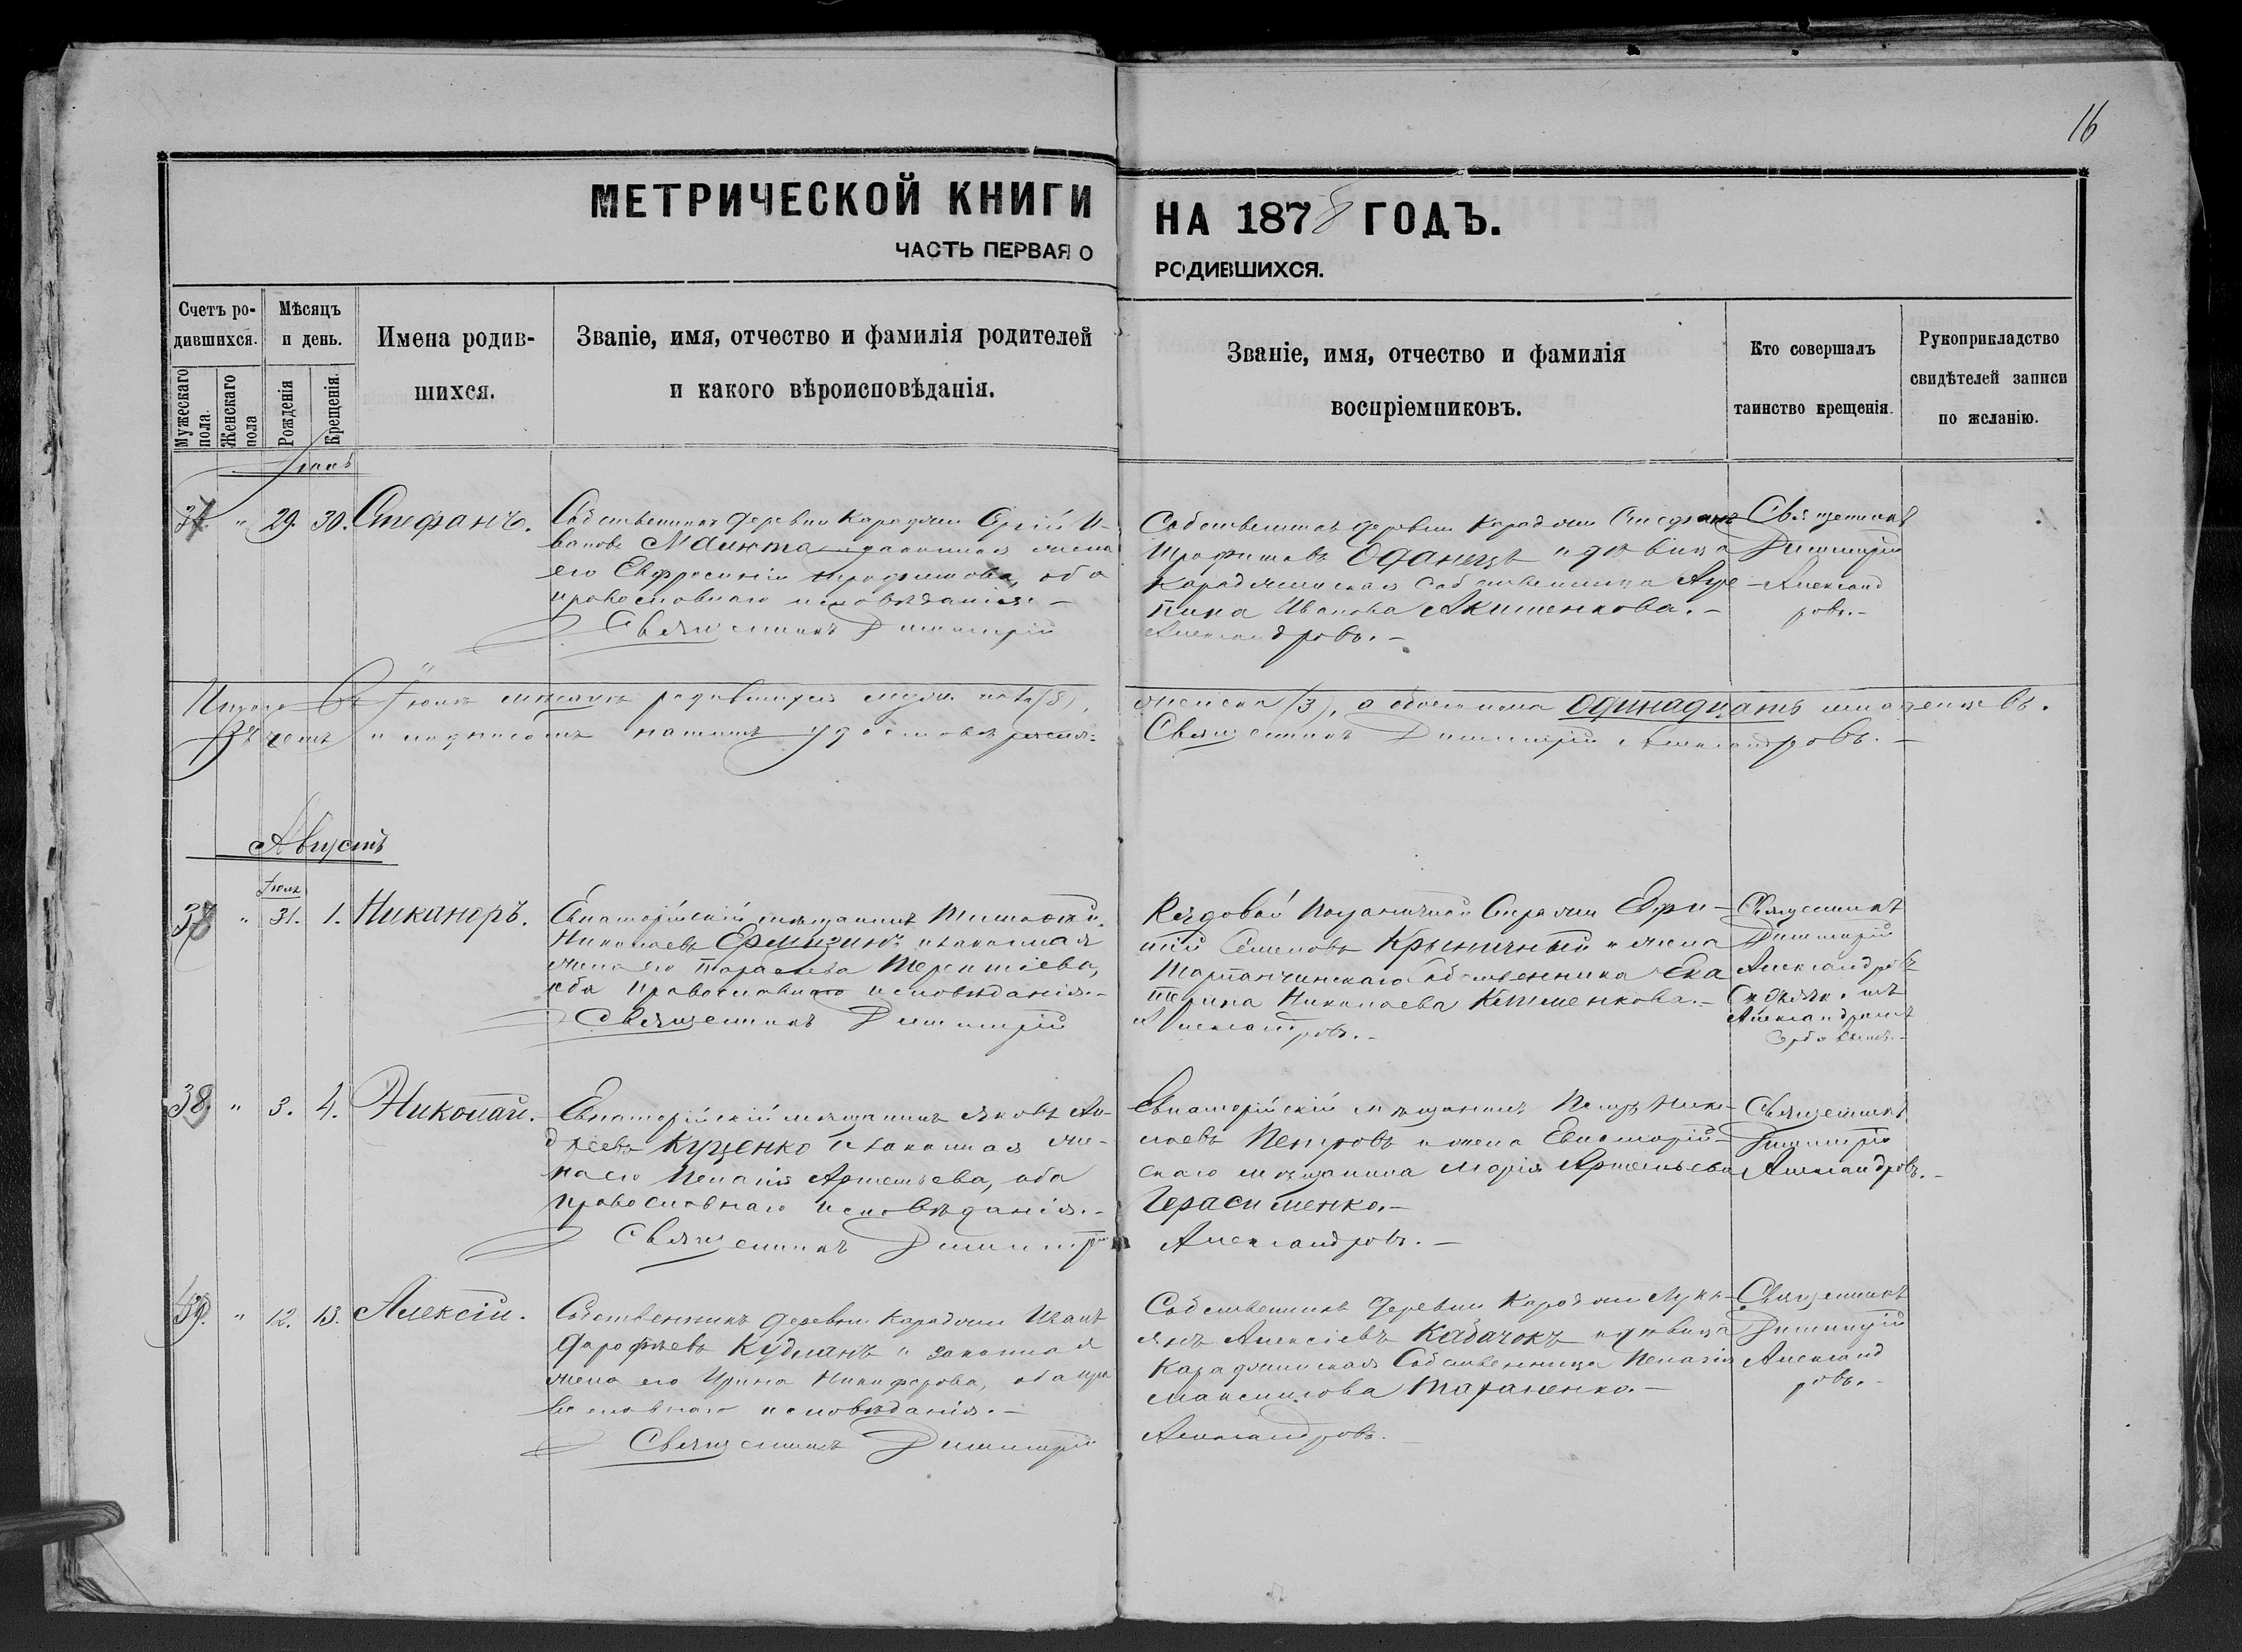 16
МЕТРИЧЕСКОЙ КНИГИ
НА 1878 ГОДЪ.
ЧАСТЬ ПЕРВАЯ О
РОДИВШИХСЯ.
Счетъ ро-
дившихся.
Мужескаго
пола.
Женскаго
пола
Мѣсяцъ
и день.
Рожденія
Крещенія.
Имена родив-
шихся.
Званіе, имя, отчество и фамилія родителей
и какого вѣроисповѣданія.
Званіе, имя, отчество и фамилія
воспріемниковъ.
Кто совершалъ
таинство крещенія.
Рукоприкладство
свидѣтелей записи
по желанію.
" 29. 30. Стефанъ.
Собственникъ деревни Караджи И-
вановъ законная жена
его Евфросинія Трофимова, оба
православнаго исповѣданія. –
Священникъ Димитрій
Собственникъ деревни Караджи Стефанъ
Трофимовъ и дѣвица
Караджинская Собственница Агре-
пина Иванова Акименкова. –
Александровъ. –
Священникъ
Димитрій
Александ
ровъ. –
Итого Въ Іюлѣ мѣсяцѣ родившихся муж. пола (8),
женска (3), а обоего пола одинадцать младенцевъ.
и подписомъ
Священникъ Димитрій Александровъ. –
Августъ
Іюля
" 31. 1. Никаноръ.
Евпаторійскій мѣщанинъ Тимофей
Николаевъ и законная
жена его Параскева Терентіева,
оба Православнаго исповѣданія. –
Священникъ Димитрій
Рядовой Пограничной Стражи
Семеновъ Крыничный и жена
Собственника Ека
терина Николаева –
Александровъ. –
Священникъ
Димитрій
Александровъ
38. " 3. 4. Николай.
Евпаторійскій мѣщанинъ Яковъ Ан-
дреевъ Куценко и законная же-
на его Пелагія Артемьева, оба
Православнаго исповѣданія. –
Священникъ Димитрій
Евпаторійскій мѣщанинъ Петръ Нико-
лаевъ Петровъ и жена Евпаторій-
скаго мѣщанина Марія Артемьева
Герасименко. –
Александровъ. –
Священникъ
Димитрій
Александровъ. –
39. " 12. 13. Алексій.
Собственникъ деревни Караджи Иванъ
Дорофѣевъ Кудланъ и законная
жена его Ирина Никифорова, оба пра
вославнаго исповѣданія. –
Священникъ Димитрій
Собственникъ деревни Караджи Лукь-
янъ Алексіевъ Кабачокъ и дѣвица
Караджинская Собственница Пелагія
Максимова Тараненко. –
Александровъ.
Священникъ
Димитрій
Александ
ровъ. –